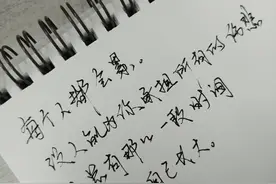 每个人都会累，
没人能为你承担所有的伤悲
总有那么一段时间
自己长大。